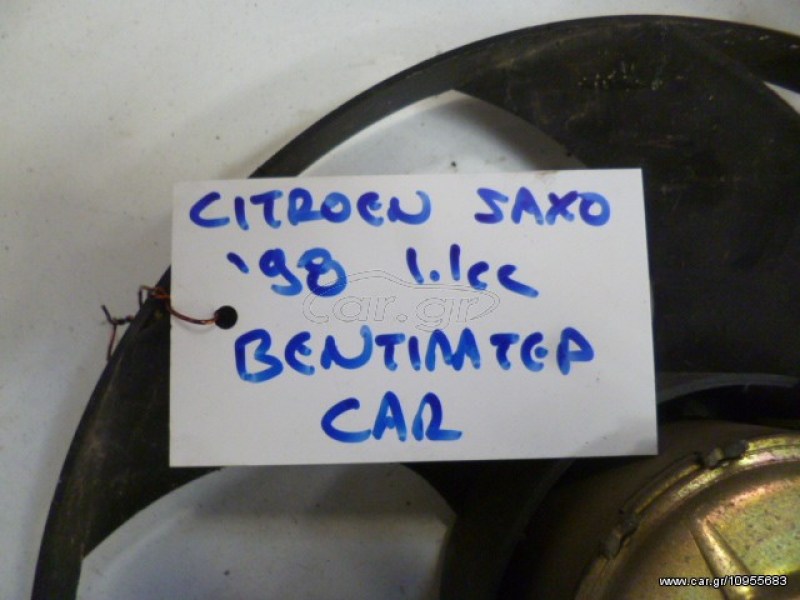 CITROEN SAXO
'98 1.1cc
car.gr
ΒΕΝΤΙΛΛΤΕΡ
CAR
www.car.gr/10955683